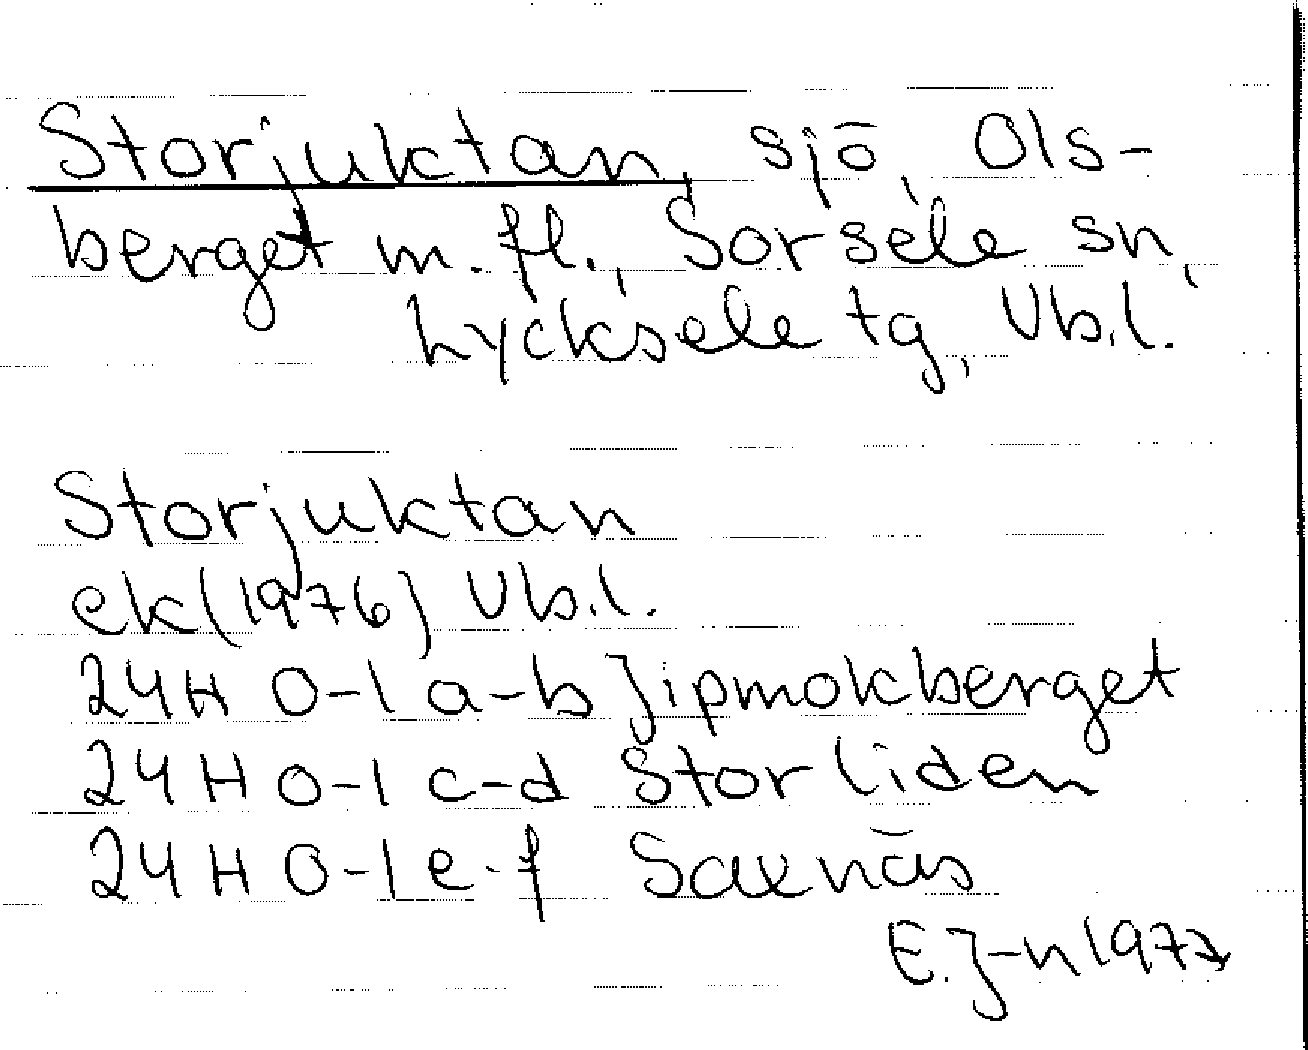 Storjuktan, sjö, Ols-
berget m. fl., Sorsele sn,
Lycksele tg, Vb.l.
Storjuktan
ek (1976) Vb.l.
24H 0-1 a-b Jipmokberget
24H 0-1 c-d Storliden
24H 0-1 e-f Saxnäs
E.J-n 1977